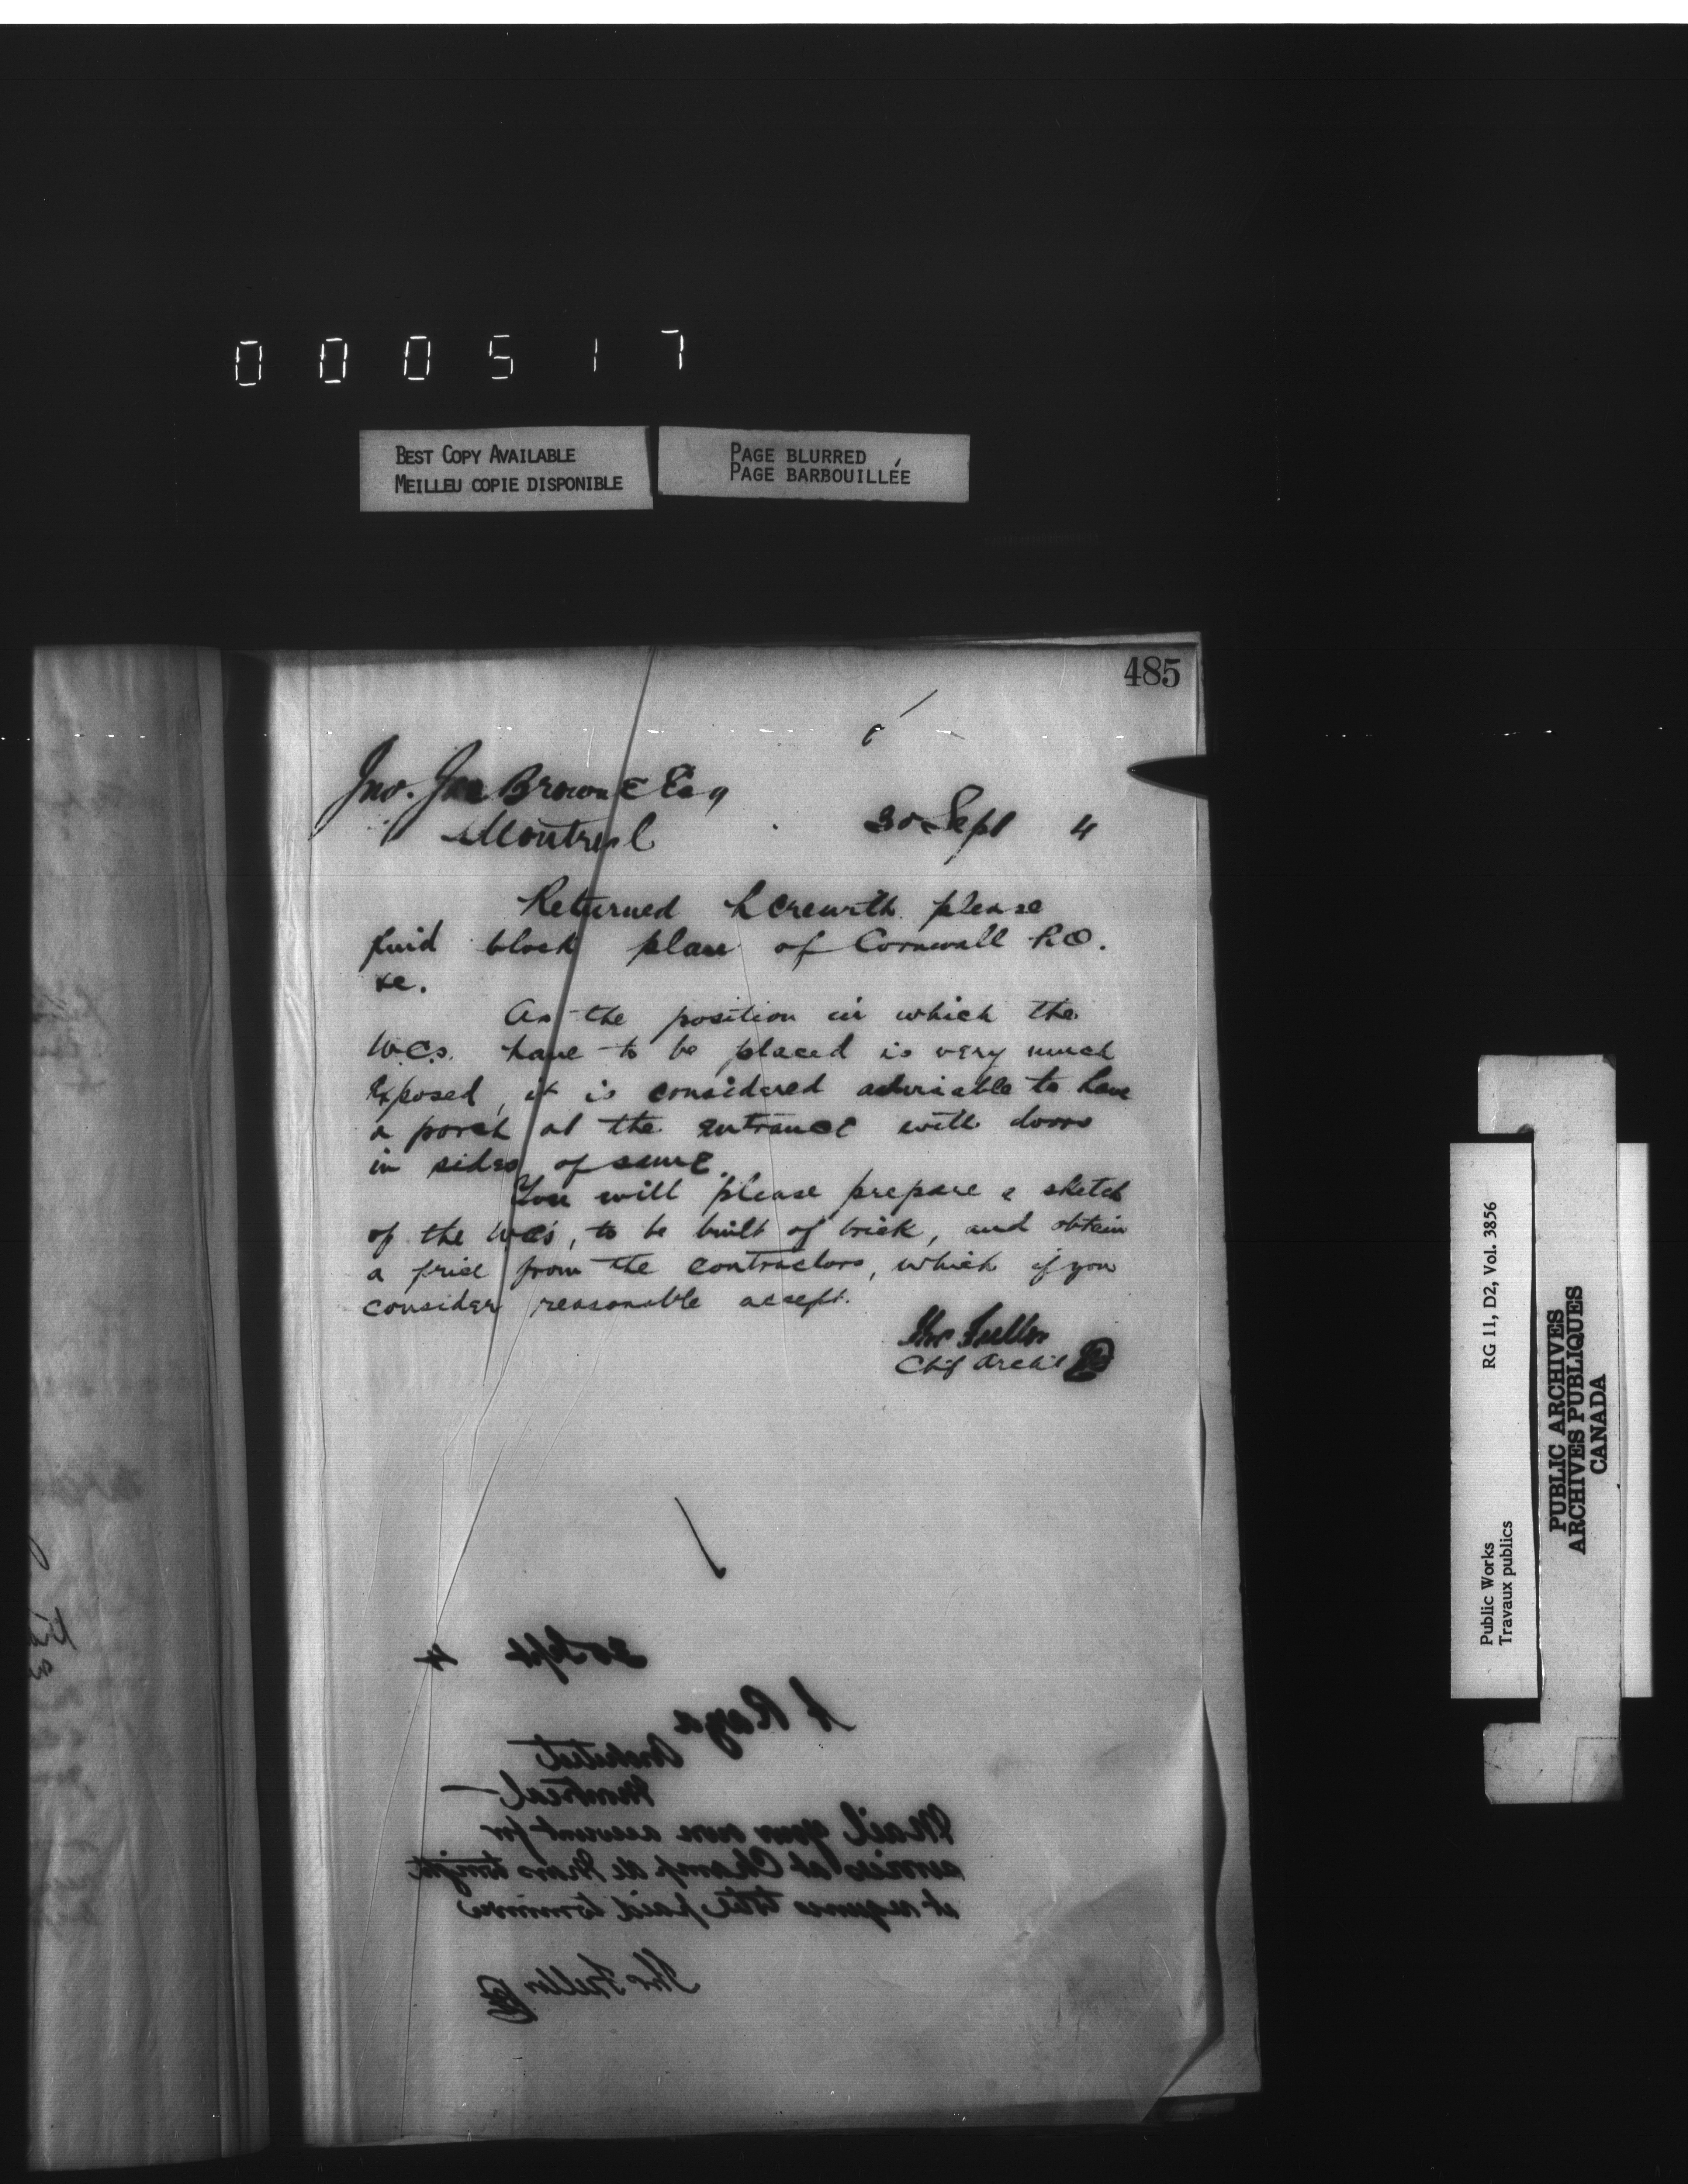 000517
BEST COPY AVAILABLE
MEILLEU COPIE DISPONIBLE
PAGE BLURRED
PAGE BARBOUILLÉE
485
Jno. Jas Browne Esq
Montreal
30 Sept 4
Returned herewith please
find block plan of Cornwall P.O.
&c.
As the position in which the
W.C.s. have to be placed is very much
exposed, it is considered advisable to have
a porch at the entrance with doors
in sides of same.
You will please prepare a sketch
of the WCs, to be built of brick, and obtain
a price from the contractors, which if you
consider reasonable accept.
Thos Fuller
Chf Archt
30 Sept 4
A Raza
Architect
Montreal
Mail your own account for
services at Champ de Mars tonight
Thos Fuller
RG 11, D2, Vol. 3856
Public Works
Travaux publics
PUBLIC ARCHIVES
ARCHIVES PUBLIQUES
CANADA